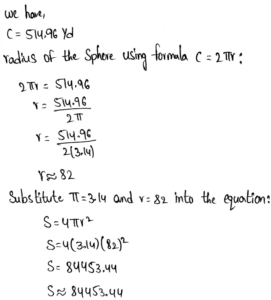 we have,
C = 514.96 Yd
radius of the Sphere using formula C = 2πr:
2πr = 514.96
r = 514.96 / 2π
r = 514.96 / 2(3.14)
r ≈ 82
Substitute π = 3.14 and r = 82 into the equation:
S = 4πr²
S = 4(3.14)(82)²
S = 84453.44
S ≈ 84453.44